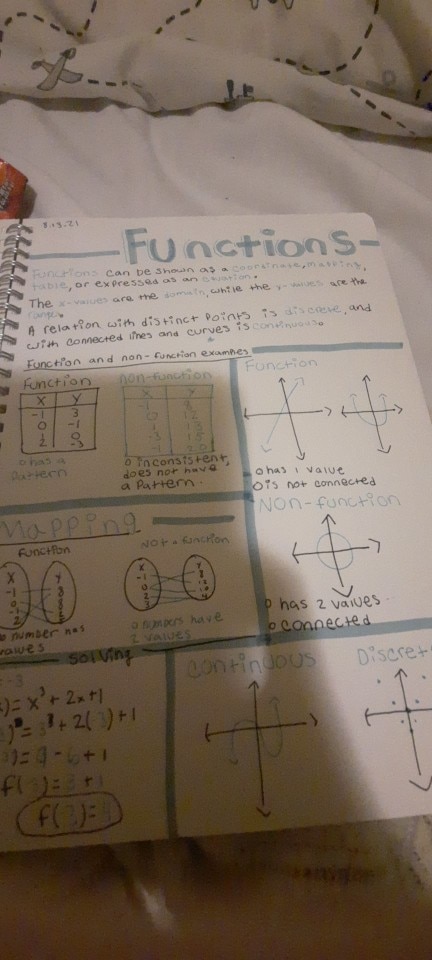 8.13.21
Functions
Functions can be shown as a coordinate, mapping,
table, or expressed as an equation.
The x-values are the domain, while the y-values are the
range.
A relation with distinct points is discrete, and
with connected lines and curves is continuous.
Function and non-function examples
Function
X Y
-1 3
0 -1
1 0
2 -3
o has a
pattern
non-function
X Y
-1
0 12
1 13
-3 15
-1
o inconsistent,
does not have
a pattern.
Function
o has 1 value
o is not connected
Non-function
o has 2 values
o connected
Mapping
Function
X Y
-1
-1
0
2
number has
values
Not a function
X Y
-1
0
2
3
o numbers have
2 values
Solving
-3
)= x³ + 2x+1
+ 2( )+1
+ 1
f( )= + 1
f( )=
Continuous
Discret